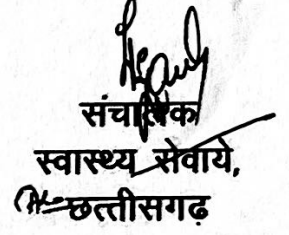 संचालक
स्वास्थ्य सेवाये,
छत्तीसगढ़